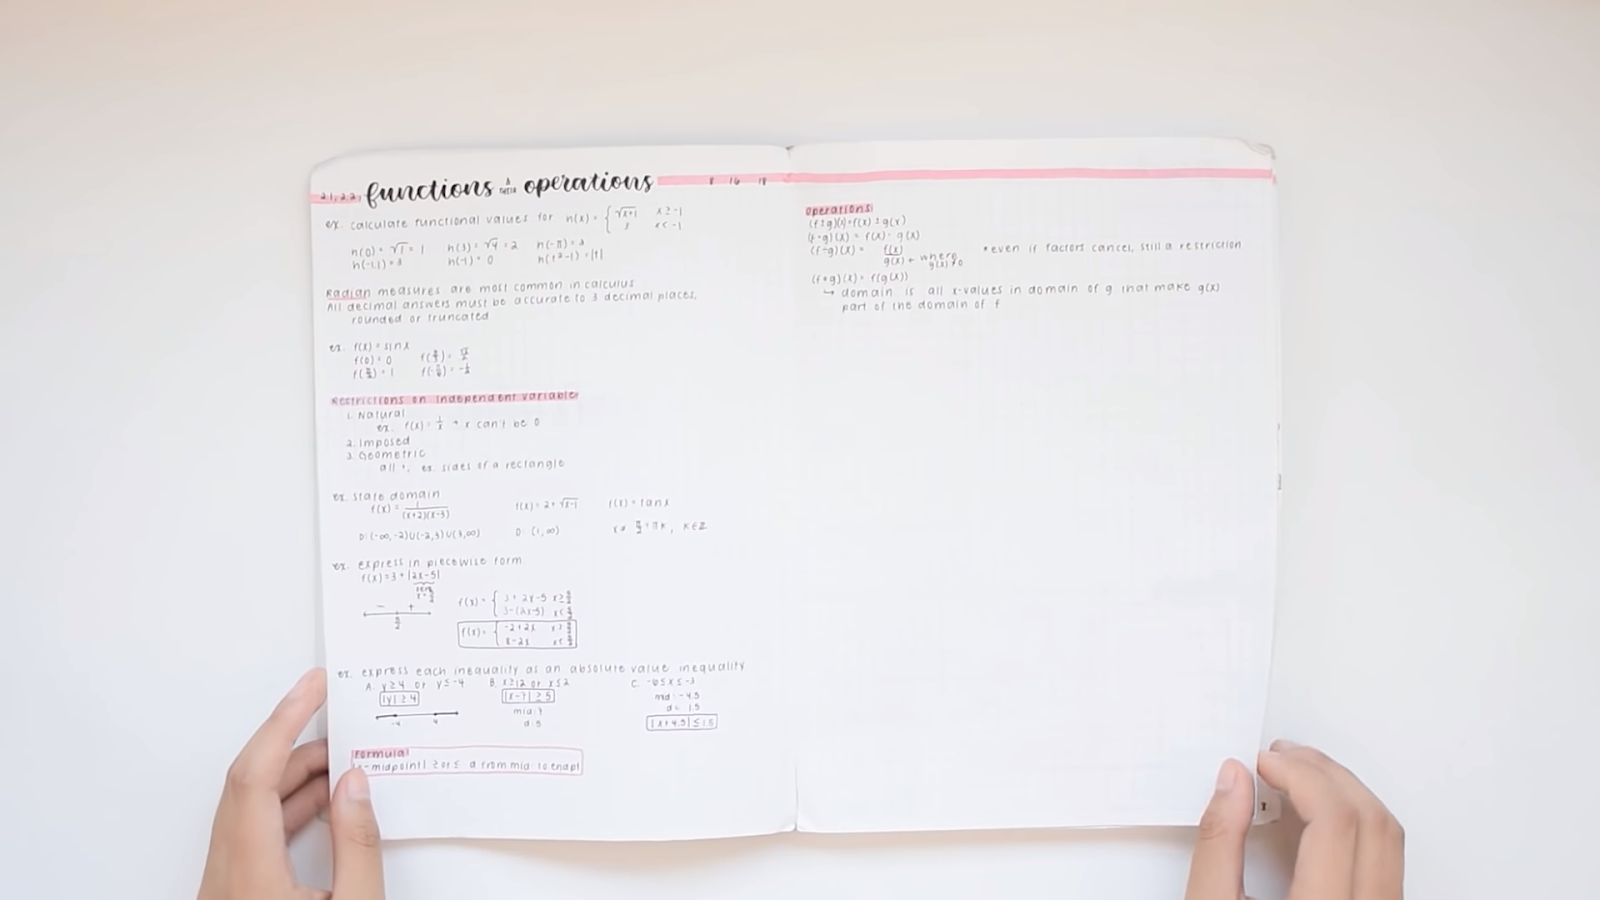 2.1, 2.2 functions & THEIR operations 8 16 18
ex. calculate functional values for h(x) = { √x+1 x ≥ -1
3 x < -1
h(0) = √1 = 1 h(3) = √4 = 2 h(-π) = 3
h(-1.1) = 3 h(-1) = 0 h(t²-1) = |t|
Radian measures are most common in calculus
All decimal answers must be accurate to 3 decimal places,
rounded or truncated
ex. f(x) = sin x
f(0) = 0 f(π/3) = √3/2
f(π/2) = 1 f(-π/6) = -1/2
Restrictions on independent variable
1. Natural
ex. f(x) = 1/x → x can't be 0
2. Imposed
3. Geometric
all +, ex. sides of a rectangle
ex. state domain
f(x) = 1/(x+2)(x-3) f(x) = 2+√x-1 f(x) = tan x
D: (-∞, -2)∪(-2,3)∪(3,∞) D: [1,∞) x ≠ π/2 + πk, k∈ℤ
ex. express in piecewise form
f(x) = 3 + |2x-5|
zero
x = 5/2
- +
5/2
f(x) = { 3 + 2x-5 x ≥ 5/2
3-(2x-5) x < 5/2
f(x) = { -2+2x x ≥ 5/2
8-2x x < 5/2
ex. express each inequality as an absolute value inequality
A. y ≥ 4 or y ≤ -4 B. x ≥ 12 or x ≤ 2 C. -6 ≤ x ≤ -3
|y| ≥ 4 |x-7| ≥ 5 mid = -4.5
-4 4 mid: 7 d = 1.5
d: 5 |x+4.5| ≤ 1.5
Formula!
-midpoint| ≥ or ≤ d from mid to endpt
Operations!
(f±g)(x) = f(x) ± g(x)
(f·g)(x) = f(x) · g(x)
(f÷g)(x) = f(x)/g(x) ← where g(x) ≠ 0 *even if factors cancel, still a restriction
(f∘g)(x) = f(g(x))
↳ domain is all x-values in domain of g that make g(x)
part of the domain of f